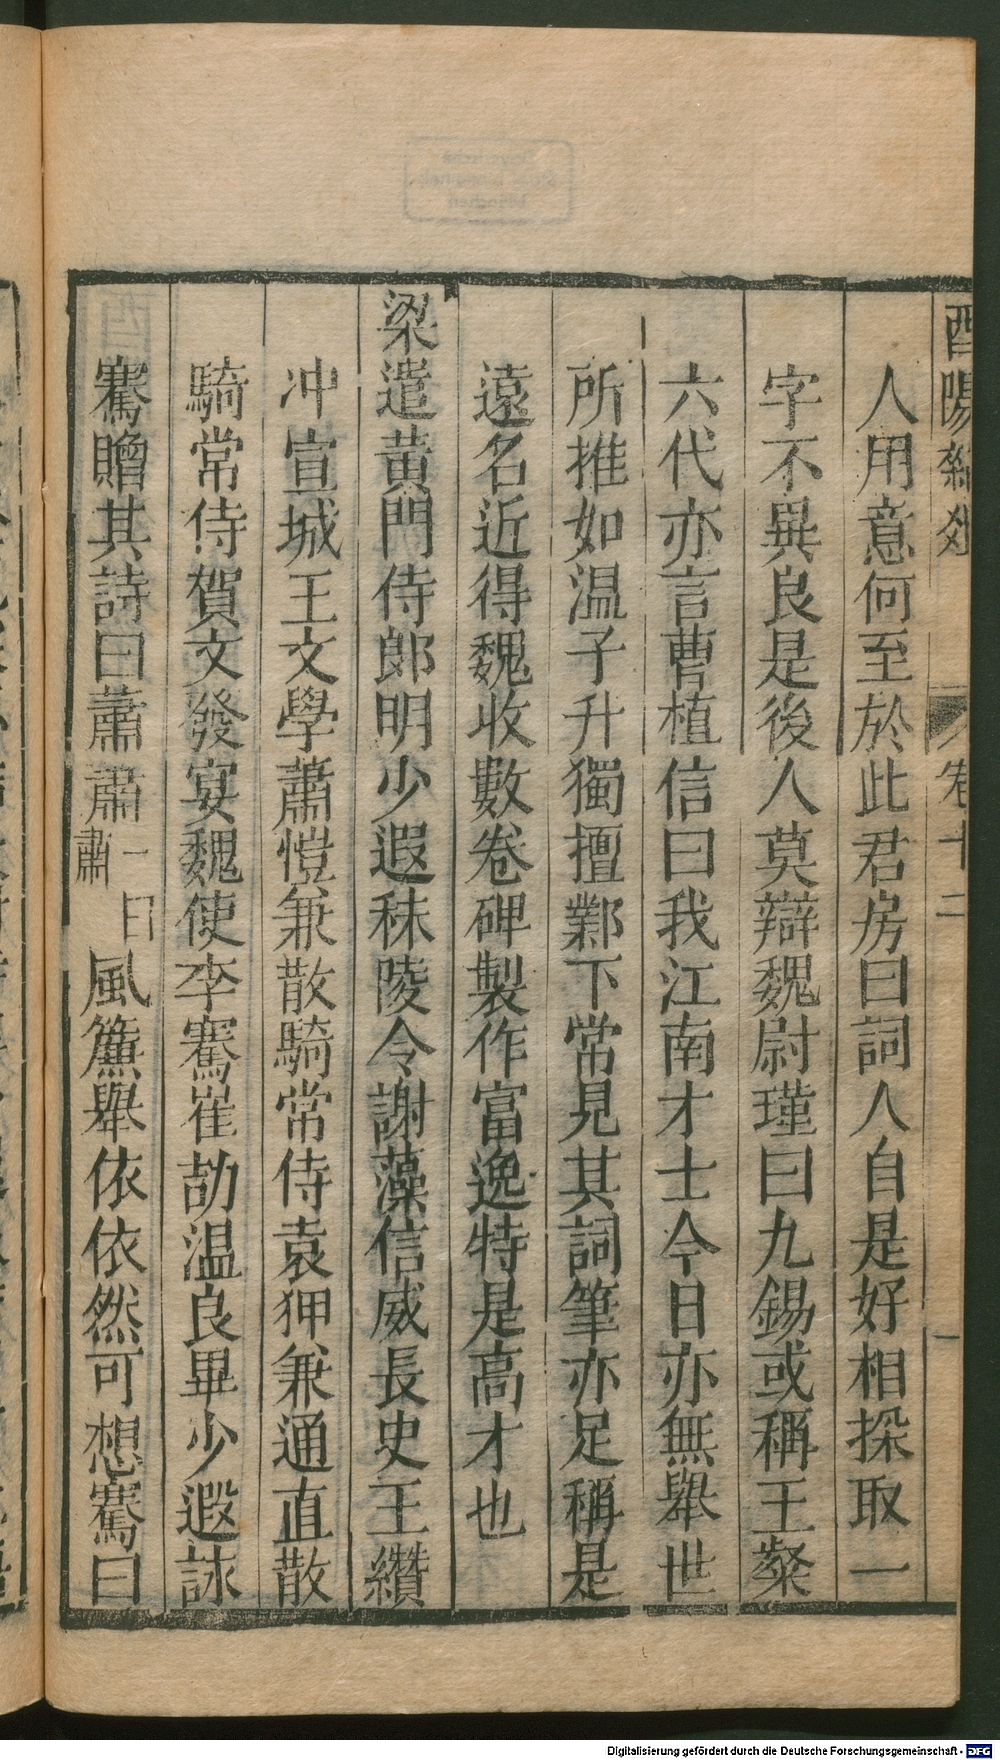 酉陽雜俎 卷十二 一
人用意何至於此君房曰詞人自是好相採取一
字不異良是後人莫辯魏尉瑾曰九錫或稱王粲
六代亦言曹植信曰我江南才士今日亦無舉世
所推如溫子升獨擅鄴下常見其詞筆亦足稱是
遠名近得魏收數卷碑製作富逸特是高才也
梁遣黃門侍郎明少遐秣陵令謝藻信威長史王纘
冲宣城王文學蕭愷兼散騎常侍袁狎兼通直散
騎常侍賀文發宴魏使李騫崔劼溫良畢少遐詠
騫贈其詩曰蕭蕭一曰肅風簾舉依依然可想騫曰
Digitalisierung gefördert durch die Deutsche Forschungsgemeinschaft - DFG